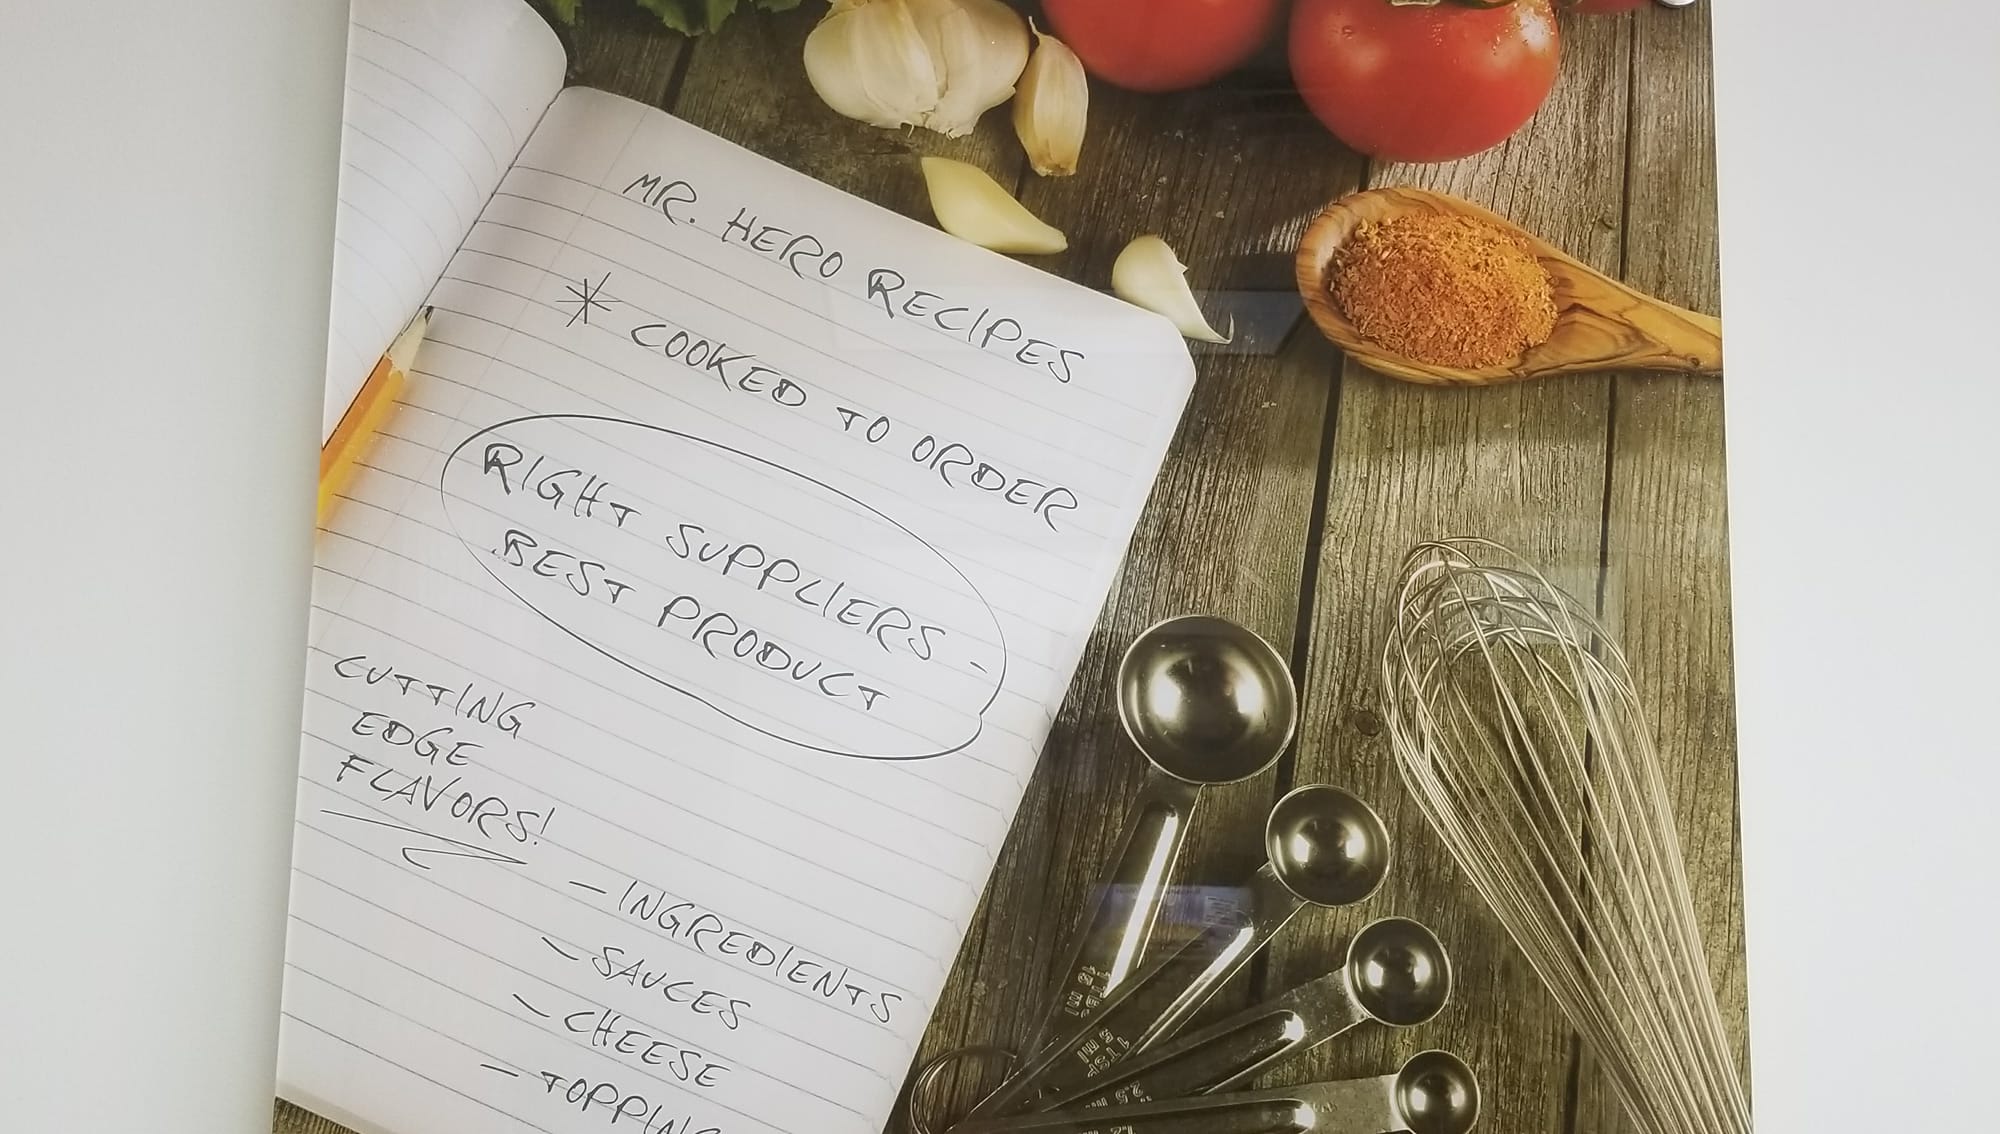 MR. HERO RECIPES
* COOKED TO ORDER
RIGHT SUPPLIERS -
BEST PRODUCT
CUTTING
EDGE
FLAVORS!
- INGREDIENTS
- SAUCES
- CHEESE
- TOPPING
15 ml
5 ml
1 TSP
2.5 m